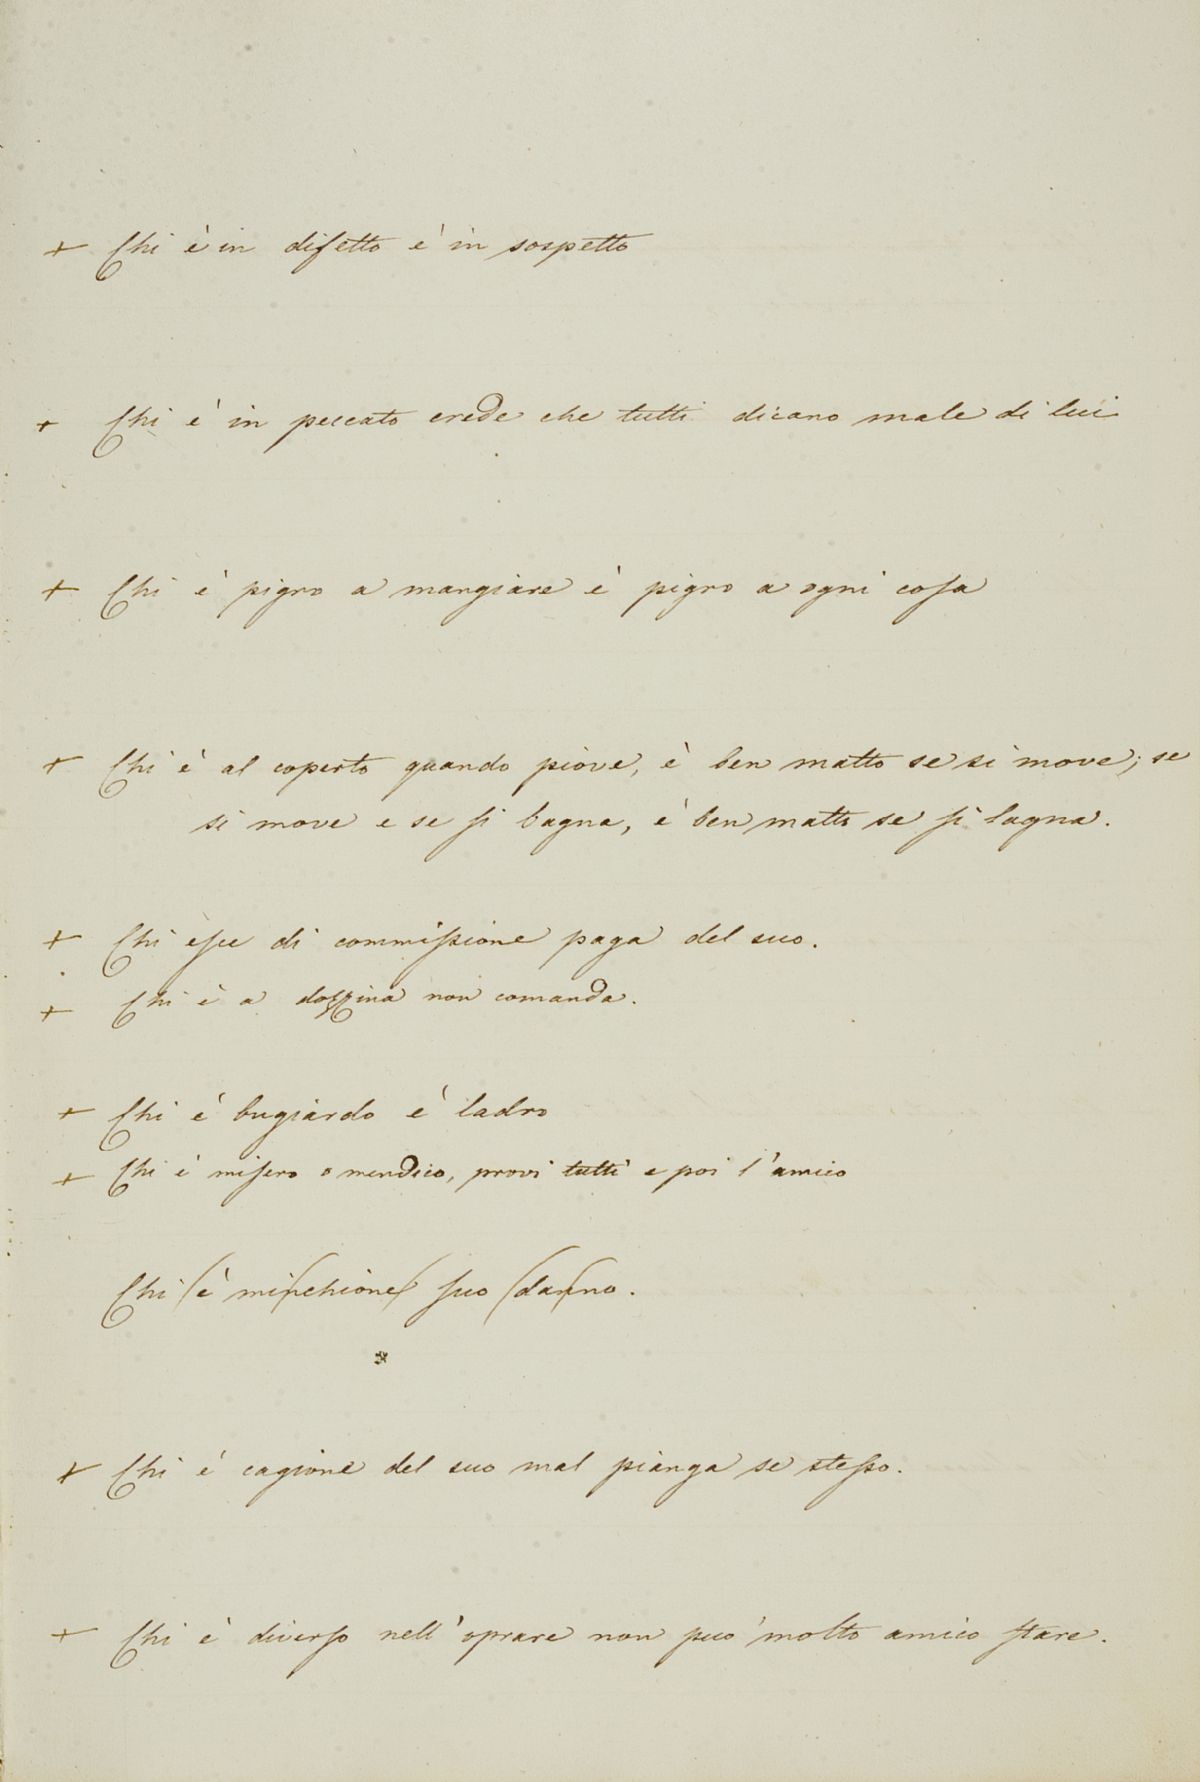 + Chi è in difetto è in sospetto
+ Chi è in peccato crede che tutti dicano male di lui
+ Chi è pigro a mangiare è pigro a ogni cosa
+ Chi è al coperto quando piove, è ben matto se si move; se
si move e se si bagna, è ben matto se si lagna.
+ Chi esce di commissione paga del suo.
+ Chi è a dozzina non comanda.
+ Chi è bugiardo è ladro
+ Chi è misero o mendico, provi tutti e poi l'amico
Chi è minchione suo danno.
+ Chi è cagione del suo mal pianga se stesso.
+ Chi è diverso nell'oprare non può molto amico stare.